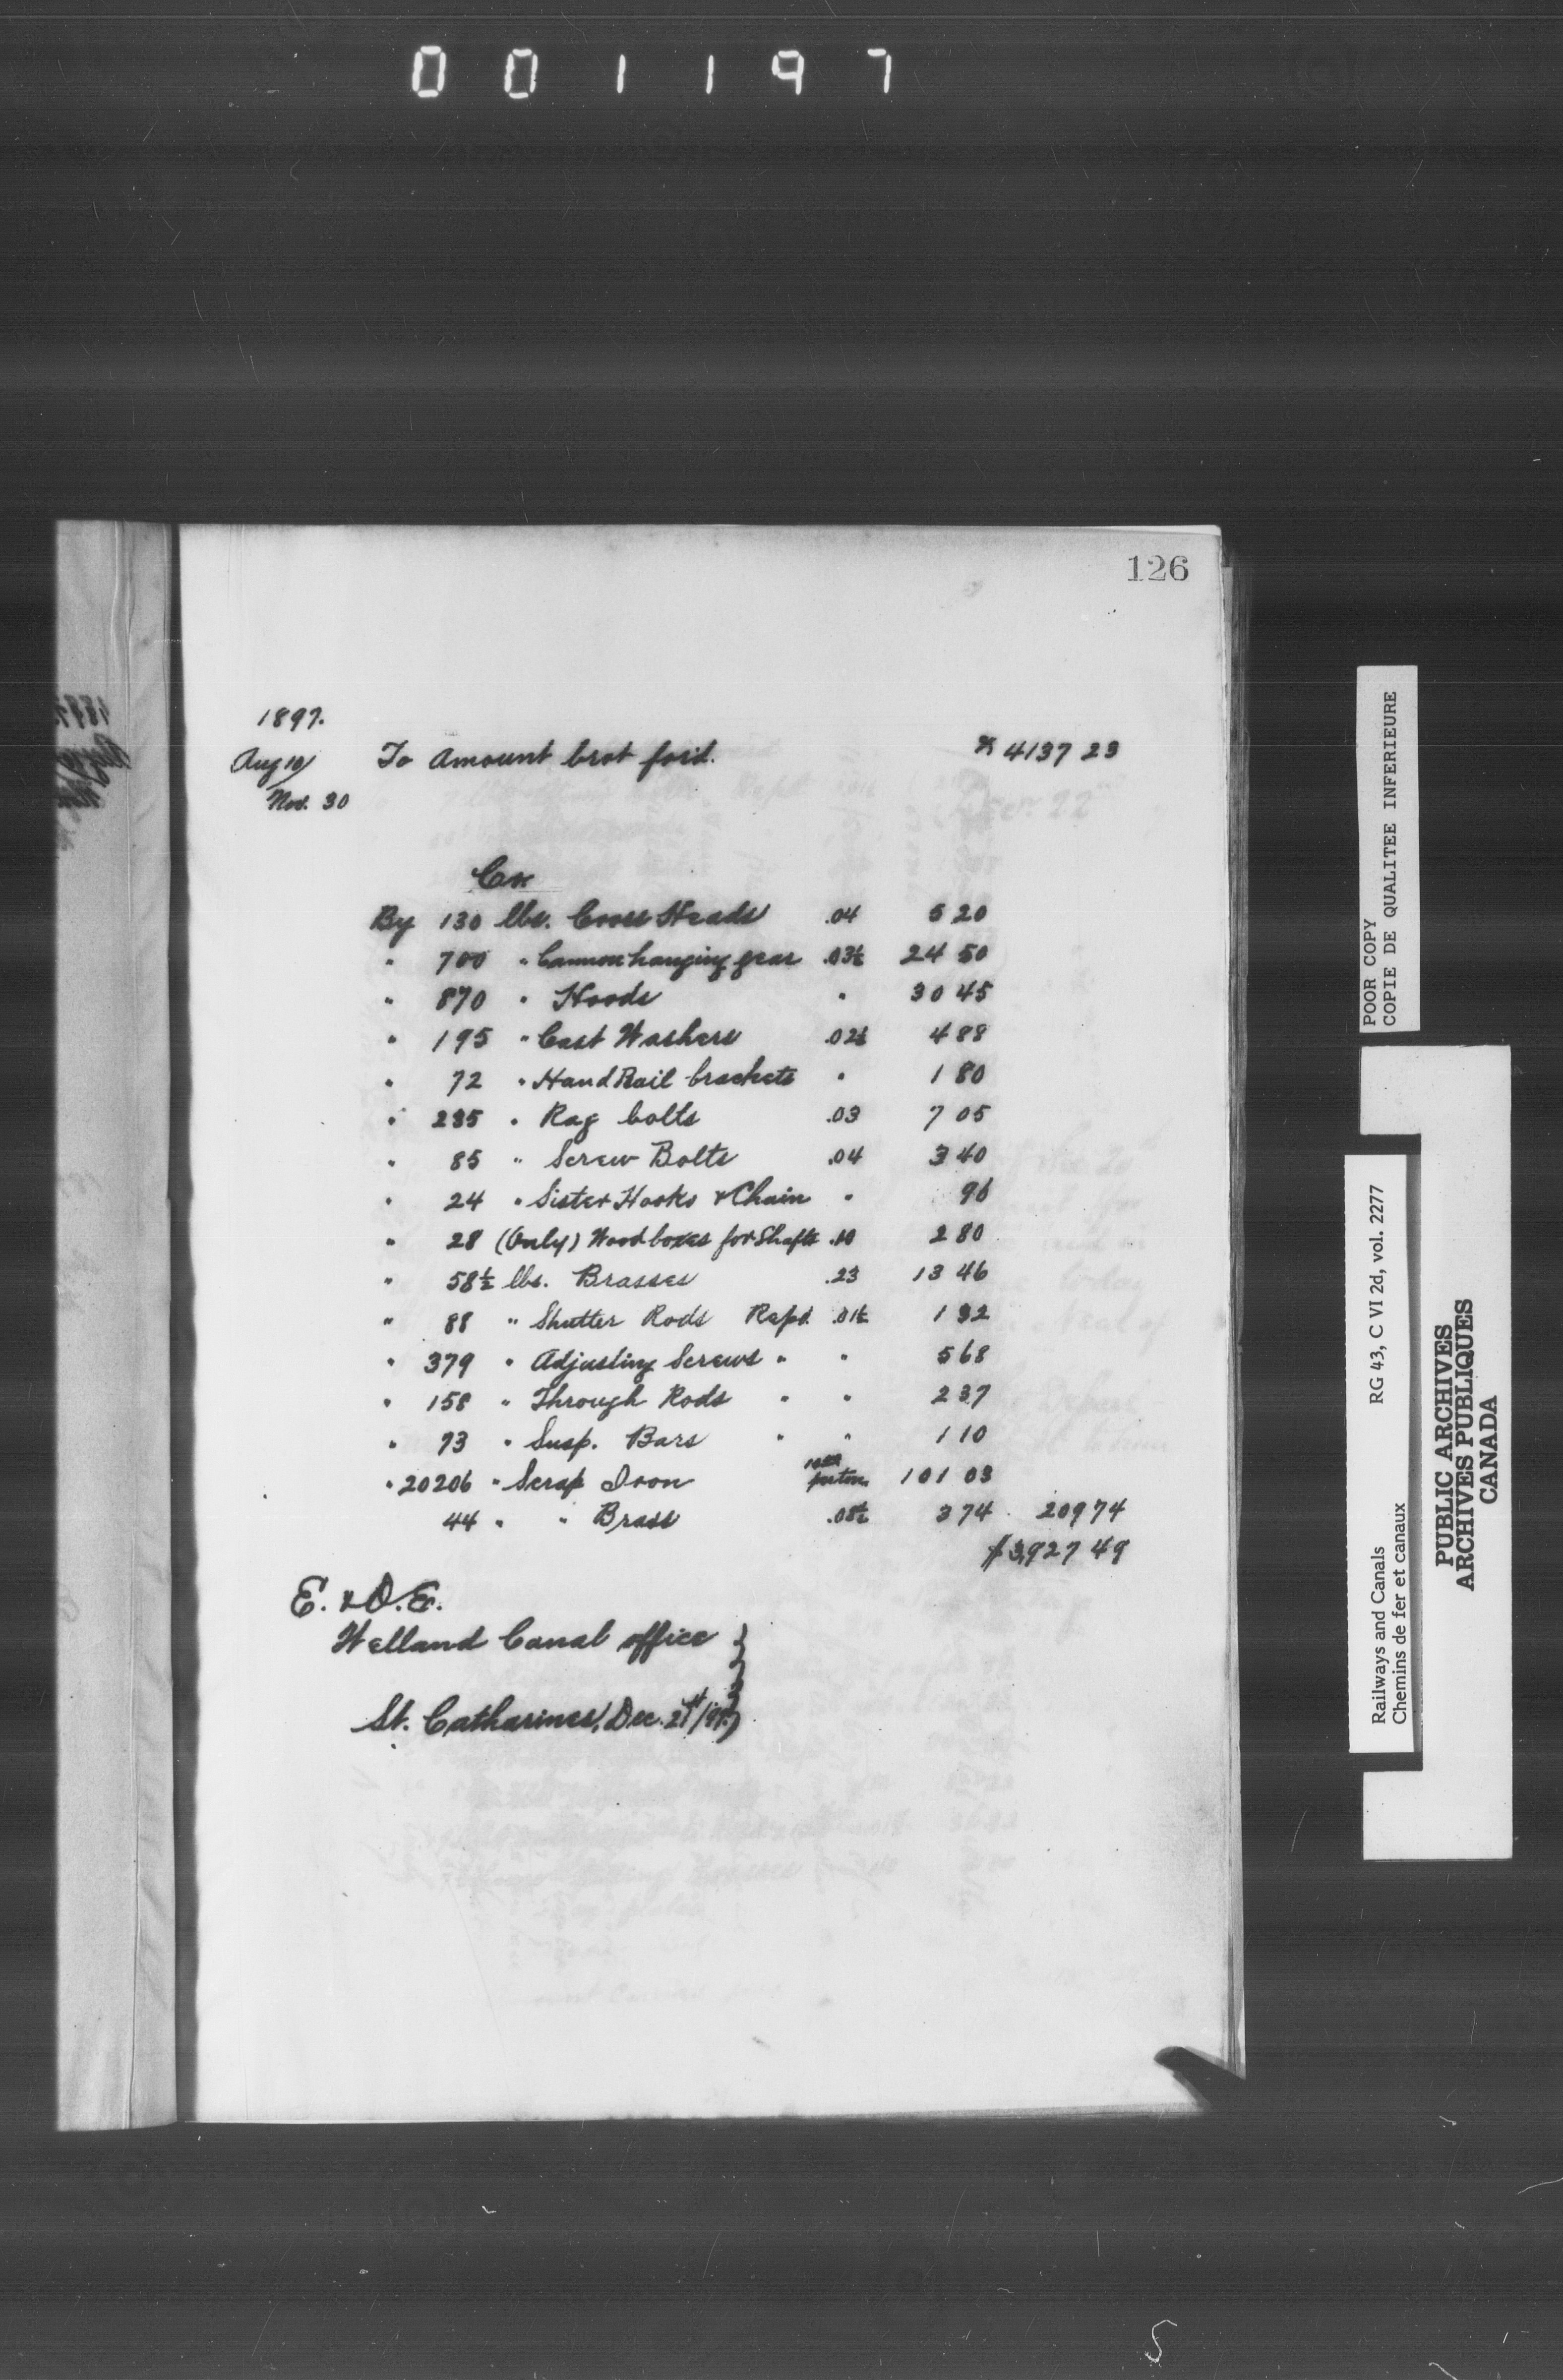 001197
126
1897.
Aug 10/ To Amount brot ford. $4137 23
Nov. 30
Cr
By 130 lbs. Cross Heads .04 5 20
" 700 " Cannon hanging gear .03½ 24 50
" 870 " Hoods " 30 45
" 195 " Cast Washers .02½ 4 88
" 72 " Hand Rail brackets " 1 80
" 235 " Rag bolts .03 7 05
" 85 " Screw Bolts .04 3 40
" 24 " Sister Hooks & Chain " 96
" 28 (Only) Wood boxes for Shafts .10 2 80
" 58½ lbs. Brasses .23 13 46
" 88 " Shutter Rods Rapd. .01½ 1 32
" 379 " Adjusting Screws " " 5 68
" 158 " Through Rods " " 2 37
" 73 " Susp. Bars " " 1 10
" 20206 " Scrap Iron per ton 101 03
44 " " Brass .08½ 3 74 209 74
$3,927 49
E. & O.E.
Welland Canal office
St. Catharines, Dec. 21st/97.
POOR COPY
COPIE DE QUALITEE INFERIEURE
Railways and Canals RG 43, C VI 2d, vol. 2277
Chemins de fer et canaux
PUBLIC ARCHIVES
ARCHIVES PUBLIQUES
CANADA